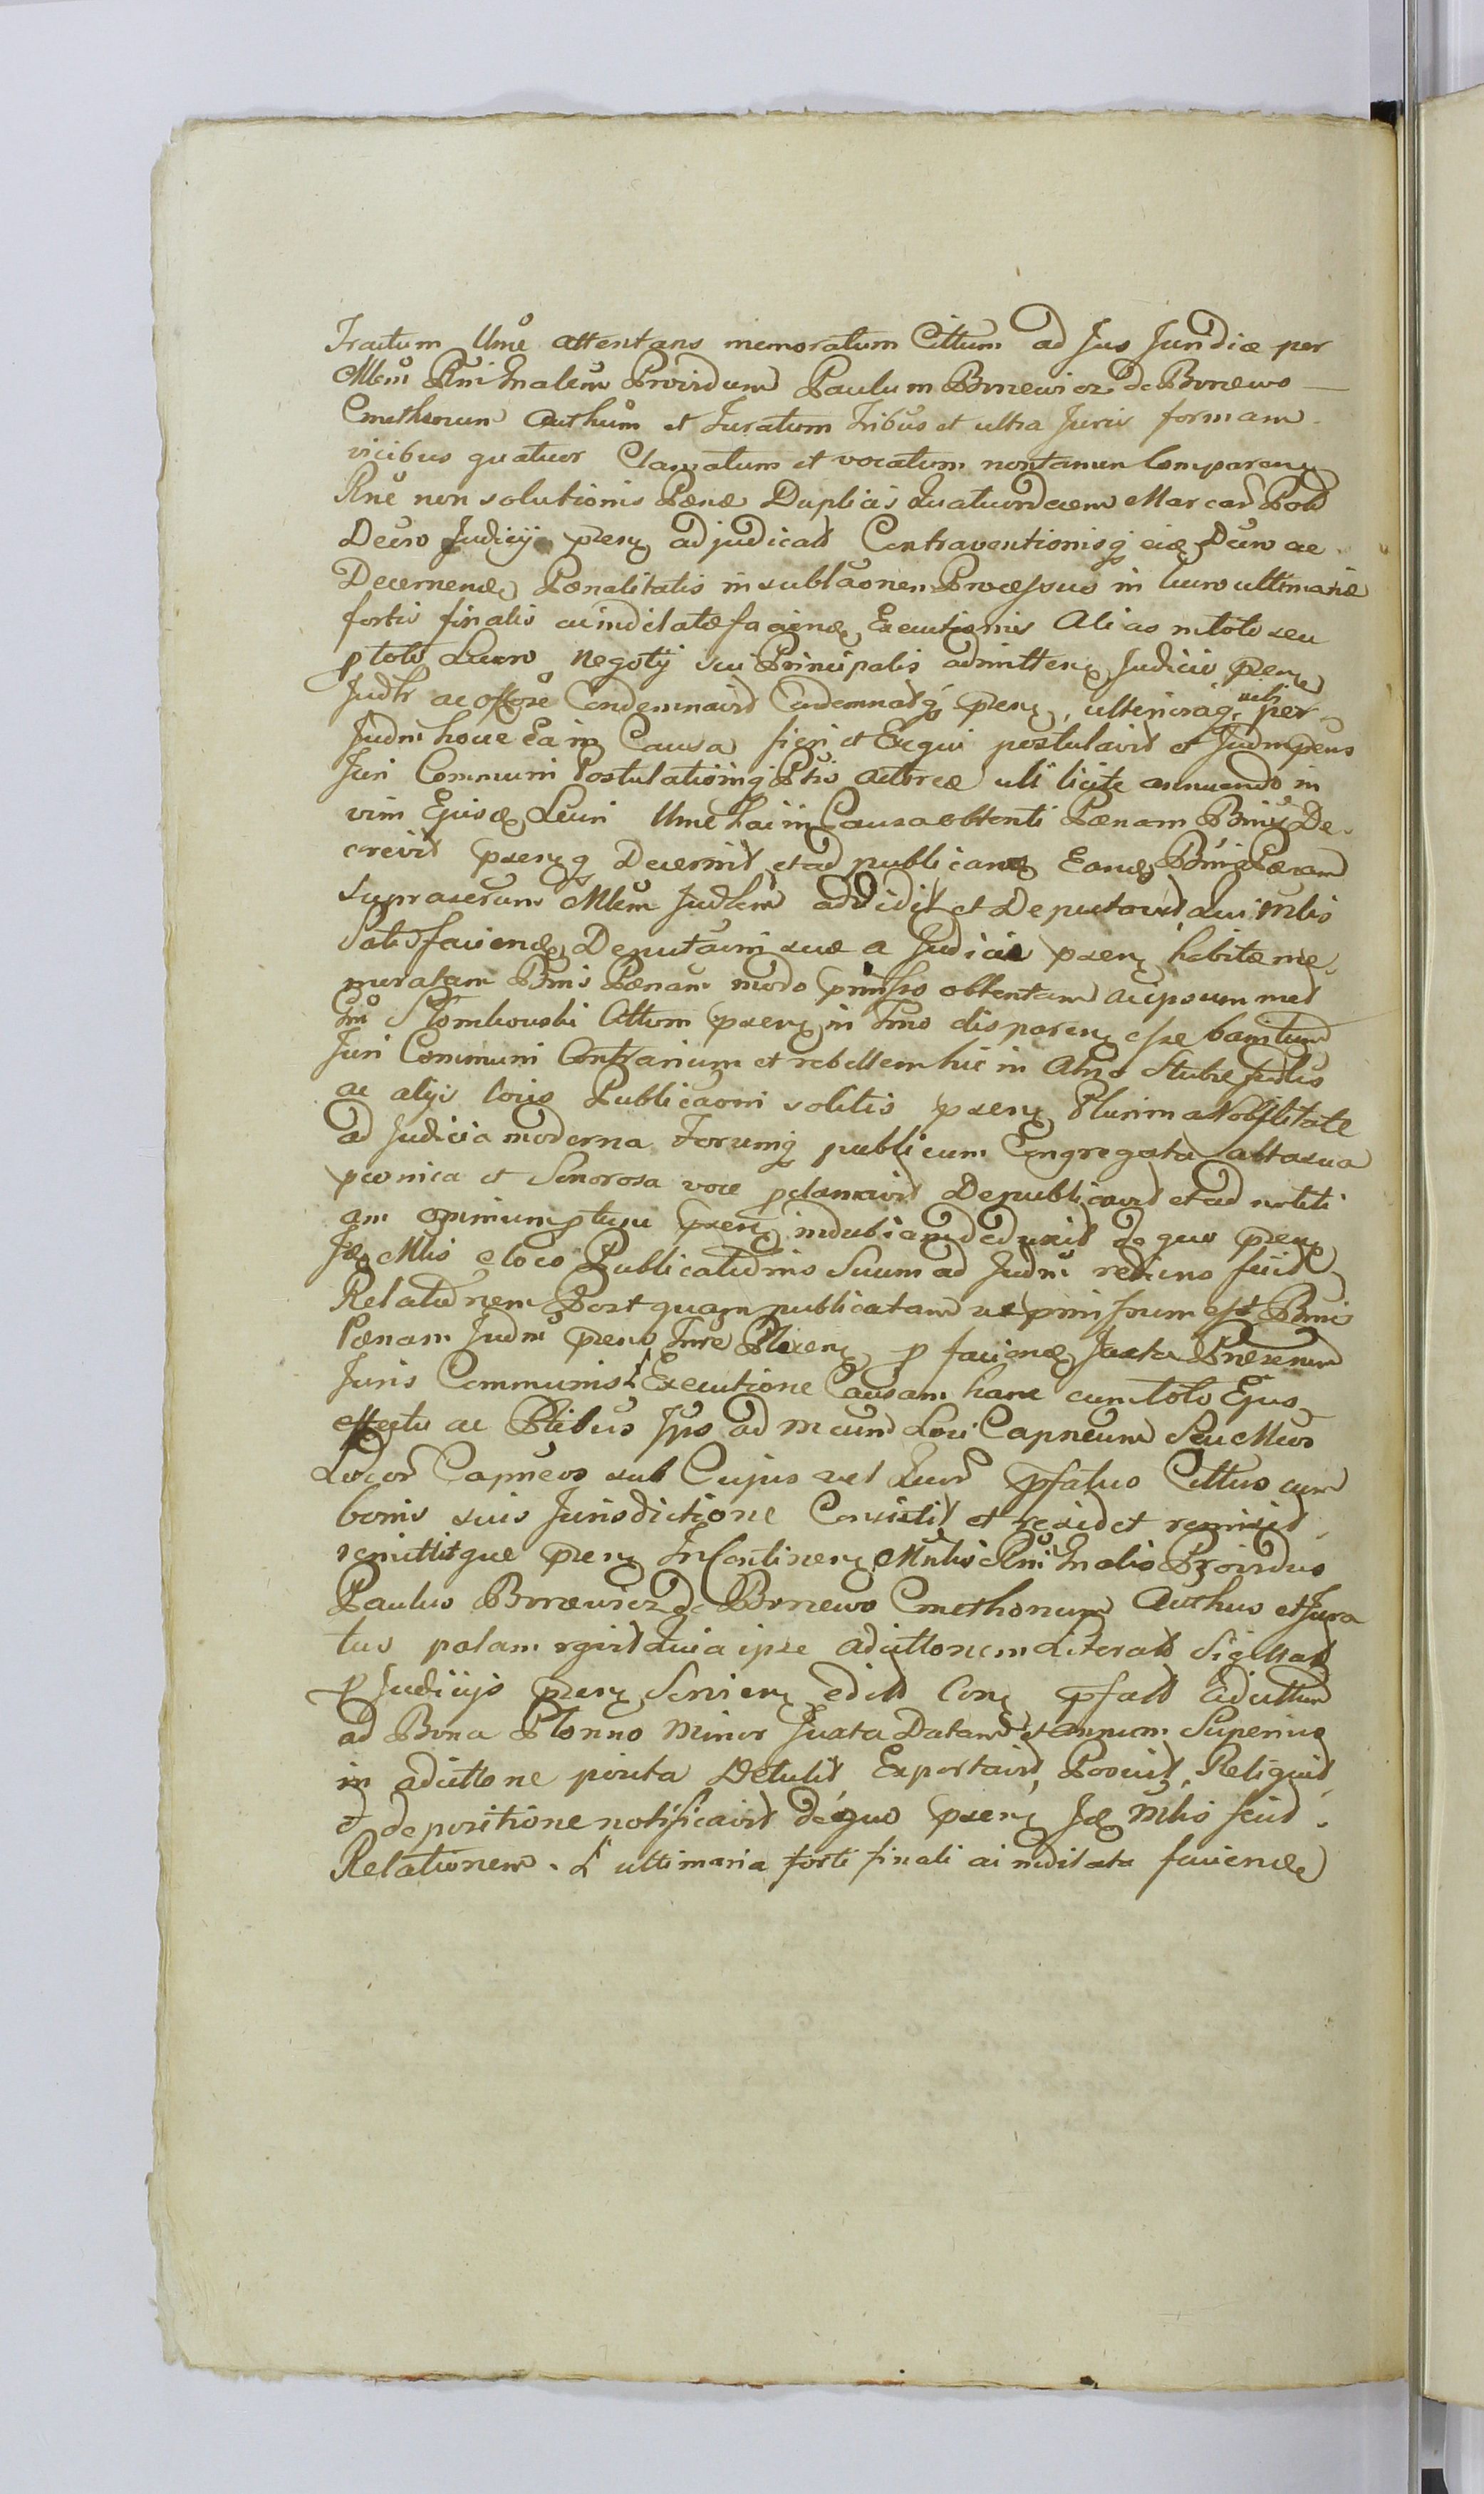 Tractum Ume attentans memoratum Cittum ad Jus Jundiæ per
Mlem Rni Gnalem Providum Paulum Bnrewicz de Bnrewo
Cmethonum Authum et Juratum tribus et ultra Juris formam
vicibus quatuor Clamatum et vocatum nontamen Comparen
Rne non solutionis Pænæ Duplicis Quatuordecem Marcar Pol
Decro Judicij præn adjudicat Contraventionisq eid Decro ac
Decernendæ Pænalitatis in sublaonen Processus in lucro ultimariæ
fortis finalis aindilatæ faciendæ Executionis Alias in toto seu
p toto Lucro Negotij sui Principalis admitten Judicio præn
Judlr ac offose Condemnavit Condemnatq præn, ulterioraq sibi per
Judm hocce Ea in Causa fieri et Exequi postulavit et Judm præns
Juri Communi Postulationiq Ptis actoreæ uti licite annuendo in
vim Ejusd Lucri Ume hac in Causa obtenti Pænam Bnnis De
crevit præn q Decernit et ad publicand Eand Bnnis Pænam
suprascrum Mlem Judlem addidit et Deputavit qui Mlis
Satisfaciendo Deputaoni suæ a Judicio præn habitæ me
moratam Bnnis Pænam modo pmisso obtentam ac ipsummet
Stomkowski Cittum præn in Tno disparen esse bannitum
Juri Communi Contrarium et rebellem hic in Atrio Stubæ Judlis
ac alijs locis Publicaoni solitis præn Plurima Nobilitate
ad Judicia moderna Forumq publicum Congregata alta sua
pconica et Sonorosa voce pclamavit Depublicavit et ad notiti
am omnium ptunc præn indubiam deduxit de quo præn
Id Mlis e loco Publicationis Suum ad Judm rediens fecit
Relationem Post quam publicatam ut pmissum est Bnnis
Pænam Judm præns Tnre Ptlæn p faciendæ Juxta Præscrum
Juris Communis Executione Causam hanc cum toto Ejus
effectu ac Ptibus Jps ad Mcum Loci Capneum Seu Mcos
Locor Capneos sub Cujus vel Quor pfatus Cittus cum
bonis suis Jurisdictione Consistit et residet remisit
remittitque præn In Continen Mlis Rni Gnalis Providus
Paulus Bnrewicz de Bnrewo Cmethonum Authus et Jura
tus palam rgvit quia ipse adcittonem Literalt Sigillat
p Judicijs præn Servien edit Con pfatt Adcittum
ad Bona Plonno Minor Juxta Datam et annum Superius
in adcittone posita Detulit Exportavit, Posuit, Reliquit
& depositione notificavit de quo præn Id Mlis fecit
Relationem. ultimaria forti finali aindilata faciendæ